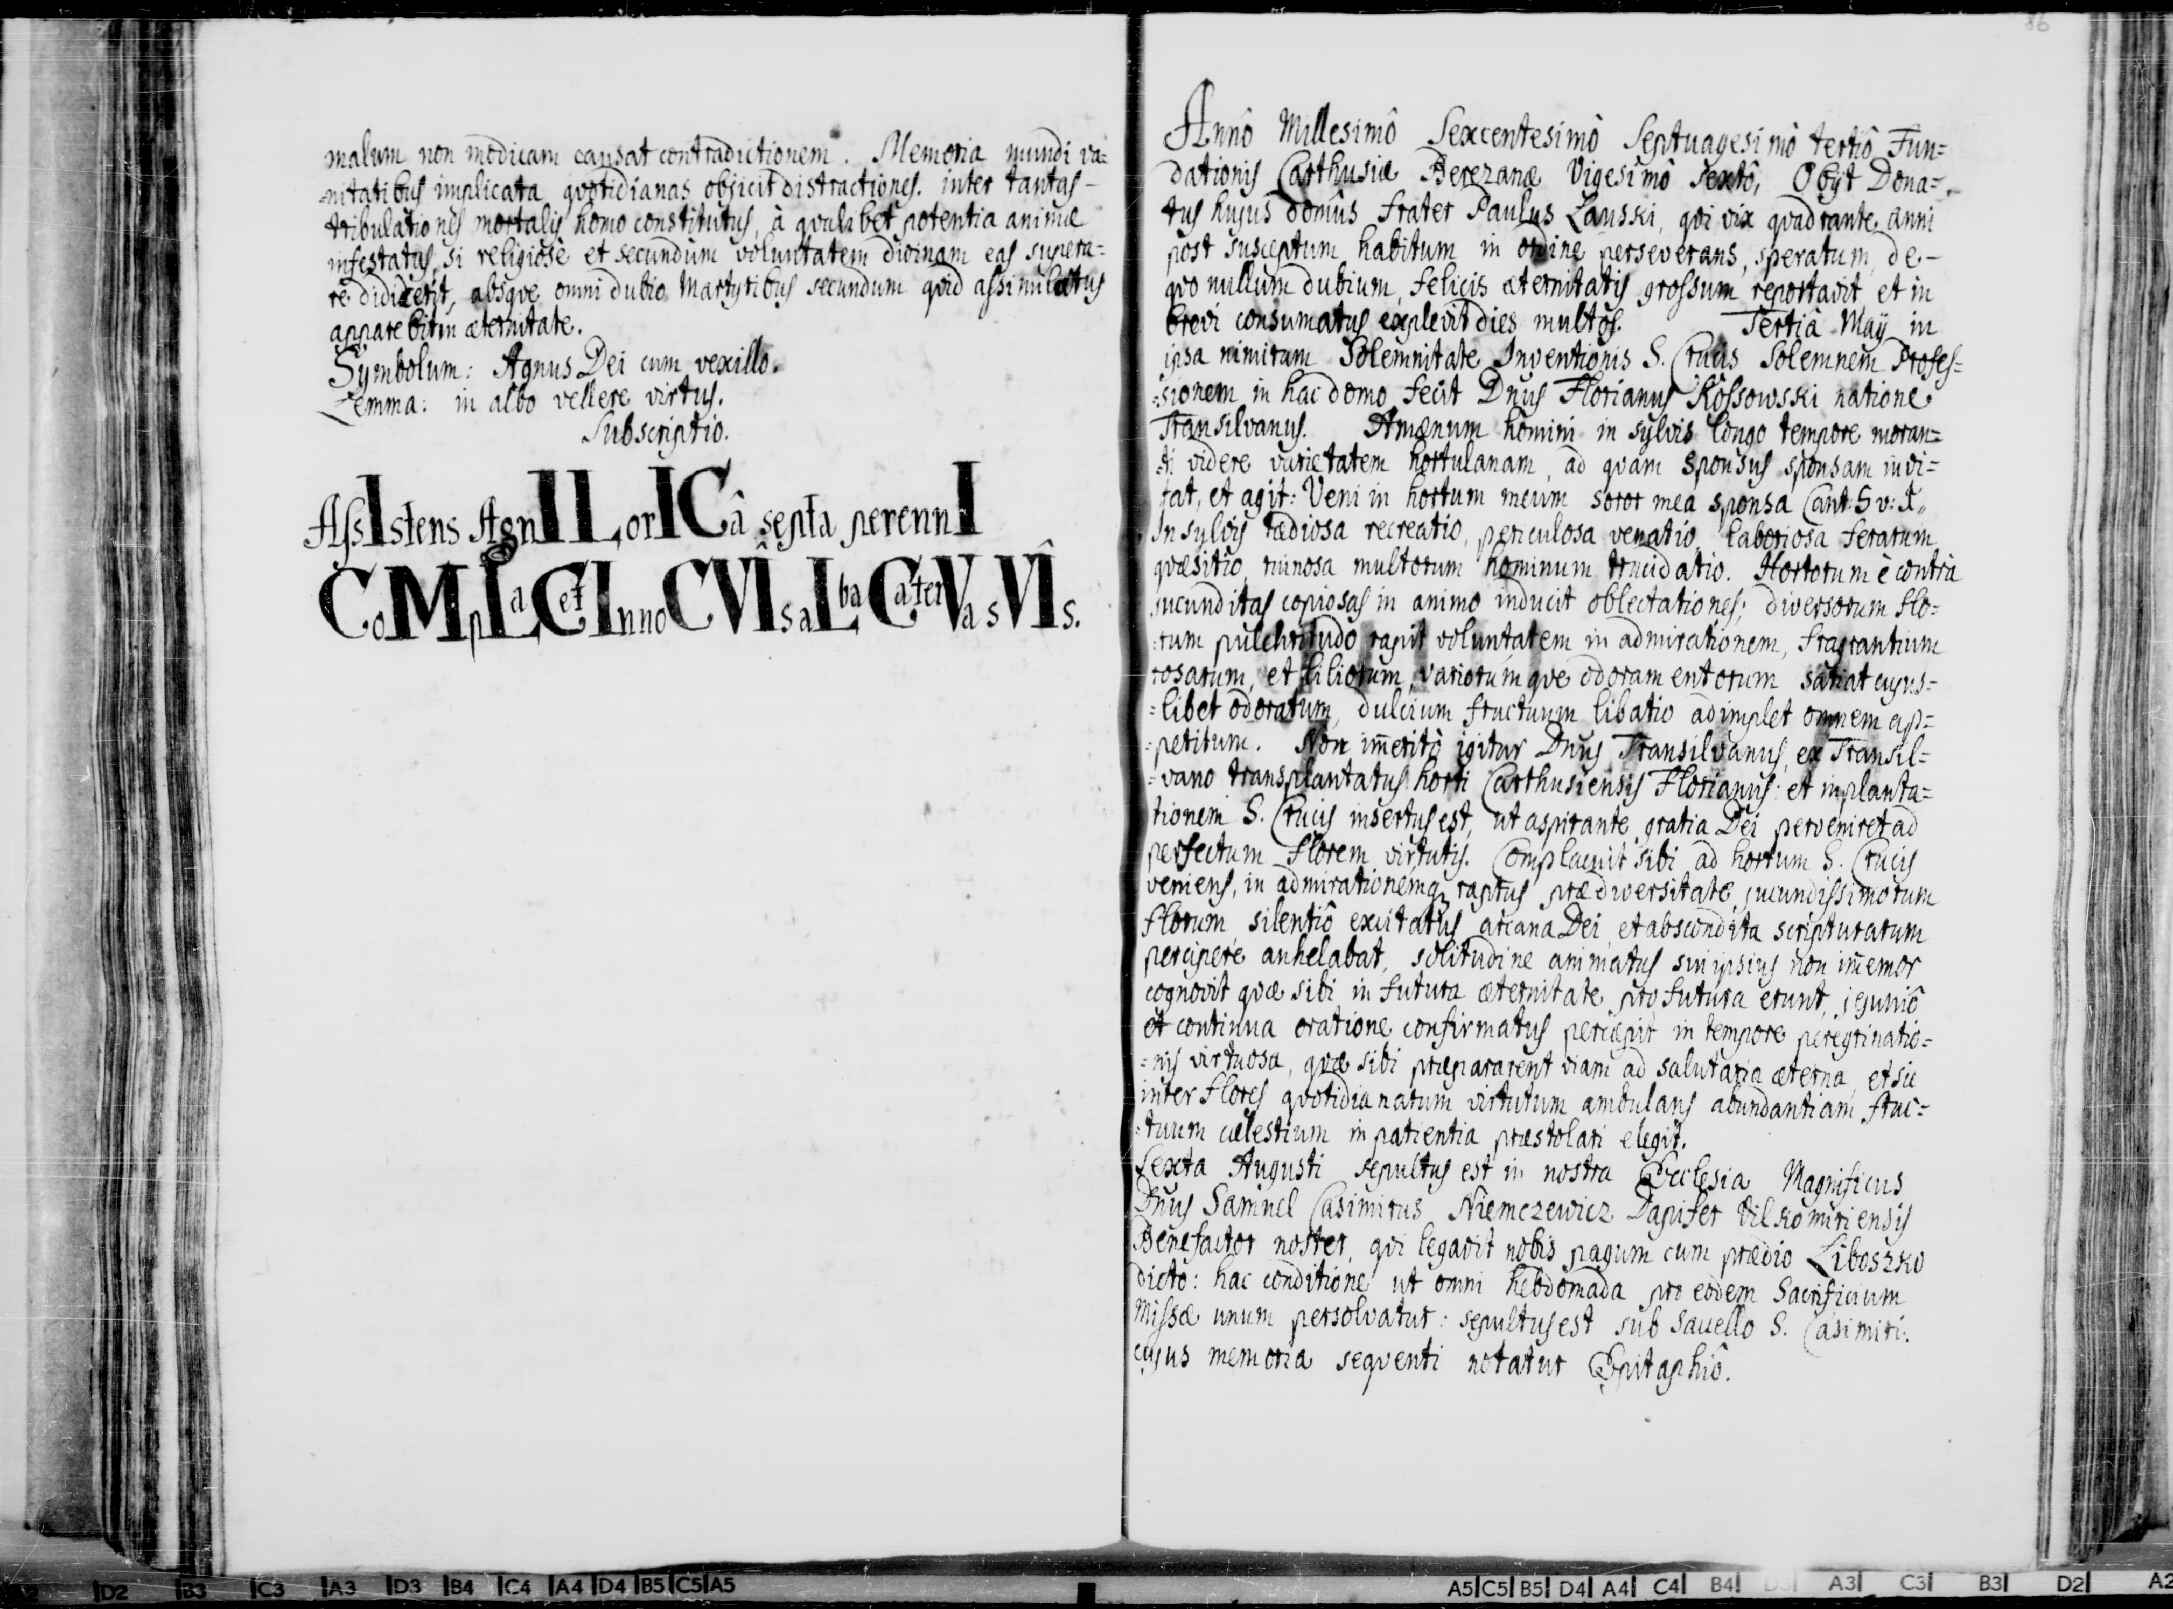 malum non modicam causat contradictionem. Memoria mundi va=
=nitatibus implicata qvotidianas objicit distractiones. inter tantas -
tribulationes mortalis homo constitutus, à qvalibet potentia animæ
infestatus, si religiosè et secundum voluntatem divinam eas supera=
re didicerit, absqve omni dubio Martyribus secundum qvid assimilatus
apparebit in æternitate.
Symbolum: Agnus Dei cum vexillo.
Lemma: in albo vellere virtus.
Subscriptio.
AssIstens AgnII LorICâ septa perennI
CoMpLaCet InnoCVîs aLba CaterVa sVîs.
86
Annô Millesimô Sexcentesimô Septuagesimô tertiô Fun=
dationis Carthusiæ Berezanæ Vigesimô Sextô, Obijt Dona=
tus hujus domûs frater Paulus Lanski, qvi vix qvadrante anni
post susceptum habitum in ordine perseverans, speratum, de -
qvo nullum dubium, felicis æternitatis grossum reportavit et in
brevi consumatus explevit dies multos. Tertiâ Maij in
ipsa nimirum Solemnitate Inventionis S. Crucis Solemnem Profes=
=sionem in hac domo fecit Dnus Florianus Kossowski natione
Transilvanus. Amænum homini in sylvis longo tempore moran=
=ti videre varietatem hortulanam, ad qvam sponsus sponsam invi=
tat, et agit: Veni in hortum meum soror mea sponsa Cant: 5 v: 1.
In sylvis tædiosa recreatio, periculosa venatio, laboriosa ferarum
qvæsitio, ruinosa multorum hominum trucidatio. Hortorum è contrà
jucunditas copiosas in animo inducit oblectationes; diversorum flo=
=rum pulchritudo rapit voluntatem in admirationem, fragrantium
rosarum, et liliorum, variorúmqve odoramentorum satiat cujus=
=libet odoratum, dulcium fructuum libatio adimplet omnem ap=
=petitum. Non im̄eritò igitur Dnus Transilvanus, ex Transil=
=vano transplantatus horti Carthusiensis Florianus: et inplanta=
tionem S. Crucis insertus est, ut aspirante gratia Dei perveniret ad
perfectum florem virtutis. Complacuit sibi ad hortum S. Crucis
veniens, in admirationemq raptus præ diversitate jucundissimorum
florum silentiô excitatus arcana Dei, et abscondita scripturarum
percipere anhelabat, solitudine animatus sui ipsius non im̄emor
cognovit qvæ sibi in futura æternitate profutura erunt, jejuniô
et continua oratione confirmatus percepit in tempore peregrinatio=
=nis virtuosa, qvæ sibi præpararent viam ad salutaria æterna, et sic
inter flores qvotidianarum virtutum ambulans abundantiam fruc=
=tuum cælestium in patientia præstolari elegit.
Sexta Augusti sepultus est in nostra Ecclesia Magnificus
Dnus Samuel Casimirus Niemczewicz Dapifer Vilkomiriensis
Benefactor noster, qvi legavit nobis pagum cum prædio Liboszko
dicto: hac conditione ut omni hebdomada pro eodem Sacrificium
Missæ unum persolvatur: sepultus est sub Sacello S. Casimiri.
cujus memoria seqventi notatur Epitaphiô.
D2 B3 C3 A3 D3 B4 C4 A4 D4 B5 C5 A5
A5 C5 B5 D4 A4 C4 B4 D3 A3 C3 B3 D2 A2